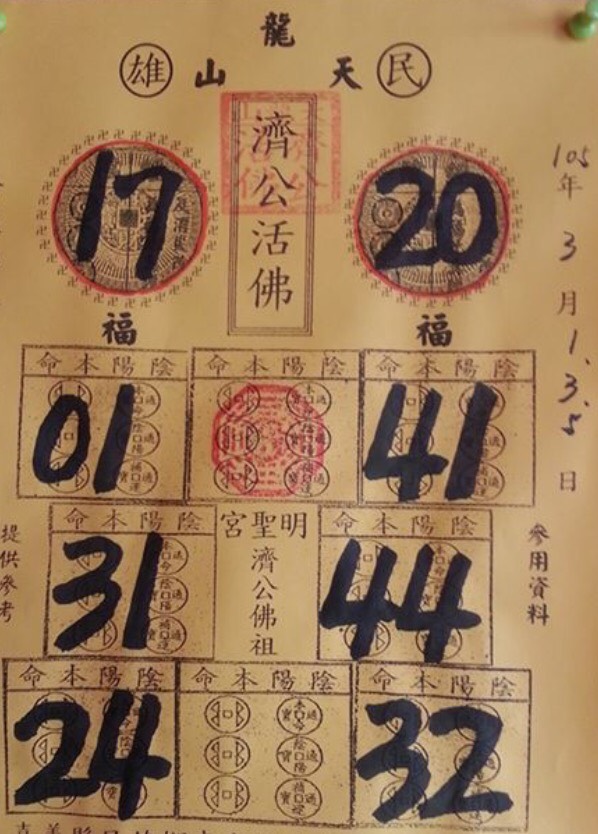 龍
雄 山 天 民
濟公活佛
17 20
105年3月1、3、5日
福 福
命本陽陰 命本陽陰 命本陽陰
01 41
命本陽陰 宮聖明 命本陽陰
31 濟公佛祖 44
提供參考
參用資料
命本陽陰 命本陽陰 命本陽陰
24 32